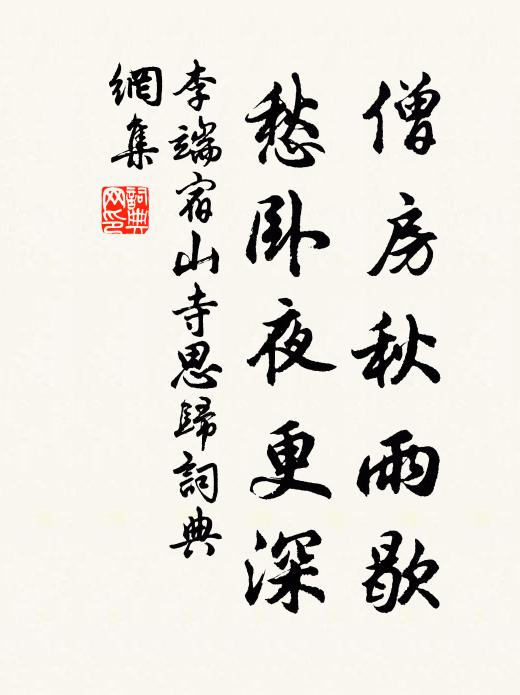 僧房秋雨歇
愁卧夜更深
李端宿山寺思歸詞典
網集
詞典
网印